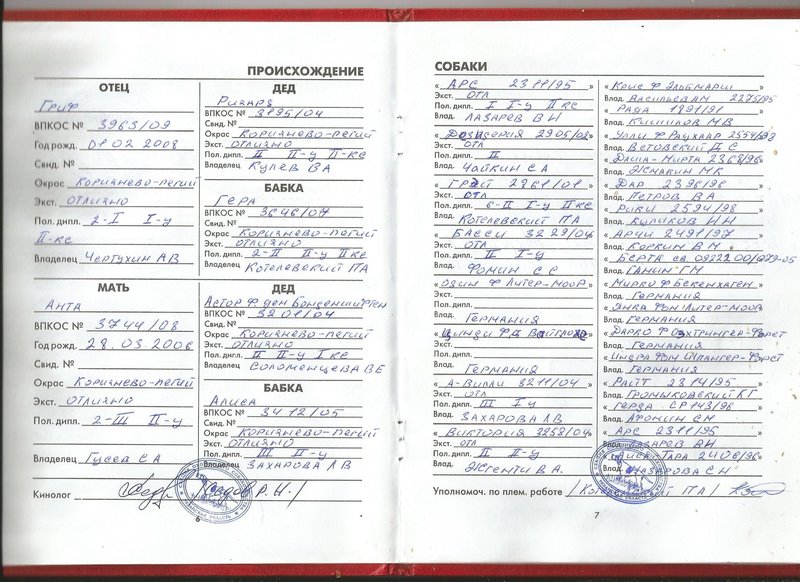 ПРОИСХОЖДЕНИЕ
ОТЕЦ
Гриф
ВПКОС № 3963/09
Год рожд. 01 02 2008
Свид. №
Окрас Коричнево-пегий
Экст. ОТЛИЧНО
Пол. дипл. 2-I I-у
II-кс
Владелец Чертухин АВ
МАТЬ
Анта
ВПКОС № 3744/08
Год рожд. 28.03.2006
Свид. №
Окрас Коричнево-пегий
Экст. ОТЛИЧНО
Пол. дипл. 2-III II-у
Владелец Гусев СА
Кинолог
6
ДЕД
Ричард
ВПКОС № 3195/04
Свид. №
Окрас Коричнево-пегий
Экст. ОТЛИЧНО
Пол. дипл. II II-у II-кс
Владелец Кулев ВА
БАБКА
Гера
ВПКОС № 3646/07
Свид. №
Окрас Коричнево-пегий
Экст. ОТЛИЧНО
Пол. дипл. 2-II II-у II кс
Владелец Котелевский ПА
ДЕД
Астор Ф ден
ВПКОС № 3201/04
Свид. №
Окрас Коричнево-пегий
Экст. ОТЛИЧНО
Пол. дипл. II II-у I кс
Владелец Соломенцева ВЕ
БАБКА
Алиса
ВПКОС № 3412/05
Свид. №
Окрас Коричнево-пегий
Экст. ОТЛИЧНО
Пол. дипл. III II-у
Владелец ЗАХАРОВА ЛВ
СОБАКИ
« АРС 2311/95 »
Экст. ОТЛ
Пол. дипл. I I-у II кс
Влад. ЛАЗАРЕВ ВН
Экст. ОТЛ
Пол. дипл. II
Влад. Чайкин СА
« ГРЭЙ 2861/01 »
Экст. ОТЛ
Пол. дипл. 6-II I-у II кс
Влад. Котелевский ПА
« БАССИ 3229/04 »
Экст. ОТЛ
Пол. дипл. II I-у
Влад. Фомин СС
« Один Ф Литер-Моор »
Экст.
Пол. дипл.
Влад. Германия
Экст.
Пол. дипл.
Влад. Германия
« А-Вилли 3211/04 »
Экст. ОТЛ
Пол. дипл. III I-у
Влад. ЗАХАРОВА ЛВ
« Виктория 3258/04 »
Экст. ОТЛ
Пол. дипл. II II-у
Влад. Жгенти В А.
« Крис Ф Эльбмарш »
Влад. Васильев АМ 2275/95
« Рада 1891/91 »
Влад. Кишилов МВ
Влад. Ветовский ДС
« Даша-Мирта 2368/96 »
Влад. Жмакин МК
« ДАР 2396/96 »
Влад. Петров ВА
« Рики 2594/98 »
Влад. Куликов НН
« Арчи 2491/97 »
Влад. Коркин ВМ
Влад. Ганин ГМ
« Мирко Ф Бекенхаген »
Влад. Германия
« Янка Фом Литер-Моор »
Влад. Германия
Влад. Германия
Влад. Германия
« Райт 2314/95 »
Влад. Громыковский КГ
« Герда СР 143/96 »
Влад. Афонин СН
« Арс 2311/95 »
Влад. Лазарев ВН
Тара 2406/96
Уполномоч. по плем. работе
7